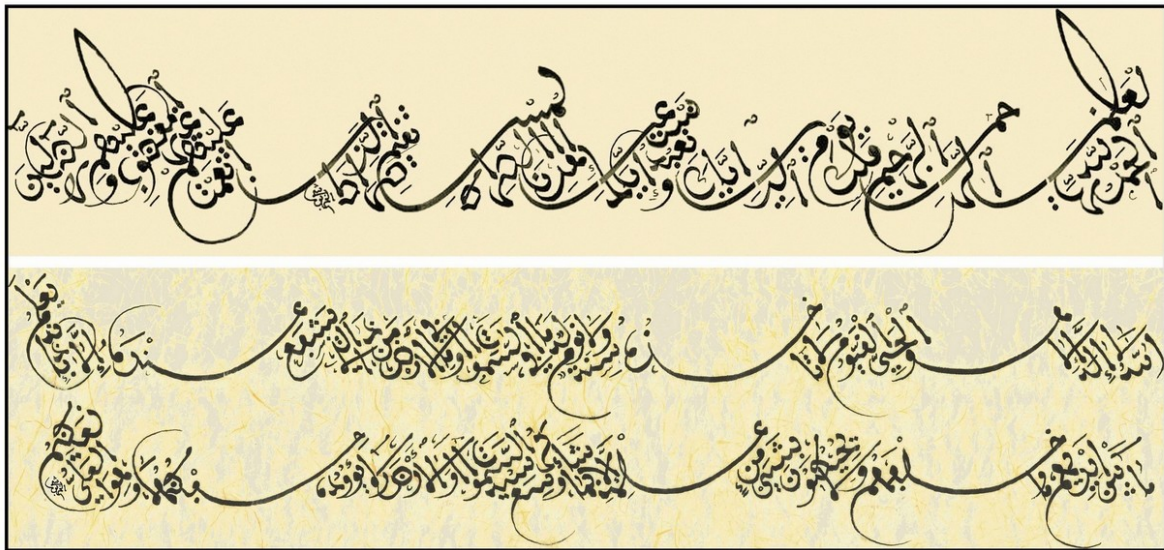 الحمد لله رب العلمين الرحمن الرحيم ملك يوم الدين اياك نعبد و اياك نستعين اهدنا الصراط المستقيم صراط الذين انعمت عليهم غير المغضوب عليهم و لا الضالين
الله لا اله الا هو الحي القيوم لا تأخذه سنة ولا نوم له ما في السموات وما في الارض من ذا الذي يشفع عنده الا باذنه يعلم
ما بين ايديهم وما خلفهم ولا يحيطون بشيء من علمه الا بما شاء وسع كرسيه السموات والارض ولا يؤده حفظهما وهو العلي العظيم